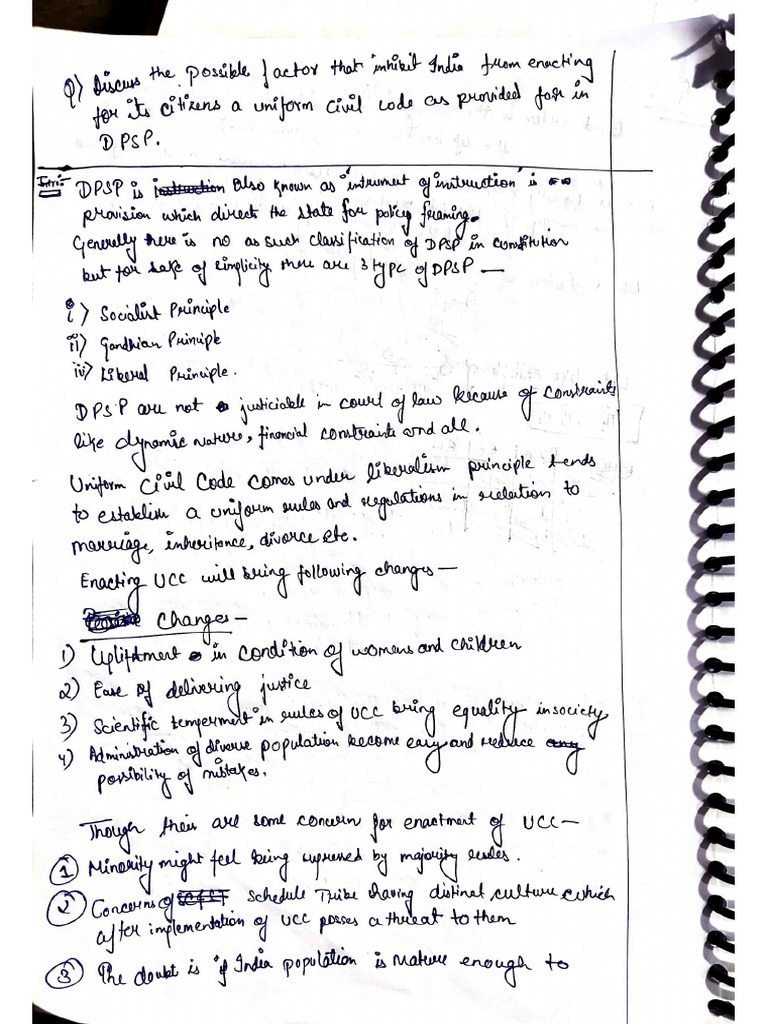 Q) Discuss the possible factor that inhibit India from enacting
for its citizens a uniform civil code as provided for in
DPSP.
Intro:- DPSP is instruction also known as "intrument of instruction" is
provision which direct the state for policy framing.
Generelly there is no as such classification of DPSP in constitution
but for sake of simplicity there are 3 type of DPSP —
i) Socialist Principle
ii) Gandhian Principle
iii) Liberal Principle.
DPSP are not justiciable in court of law because of constraints
like dynamic nature, financial constraints and all.
Uniform Civil Code comes under liberalism principle tends
to establish a uniform rules and regulations in relation to
marriage, inheritance, divorce etc.
Enacting UCC will bring following changes —
Changes —
1) Upliftment in condition of womens and children
2) Ease of delivering justice
3) Scientific temperment in rules of UCC bring equality in society
4) Administration of diverse population become easy and reduce any
possibility of mistakes.
Though their are some concern for enactment of UCC —
1 Minority might feel being supressed by majority rules.
2 Concerns of Schedule Tribe having distinct culture which
after implementation of UCC posses a threat to them
3 The doubt is if India population is mature enough to